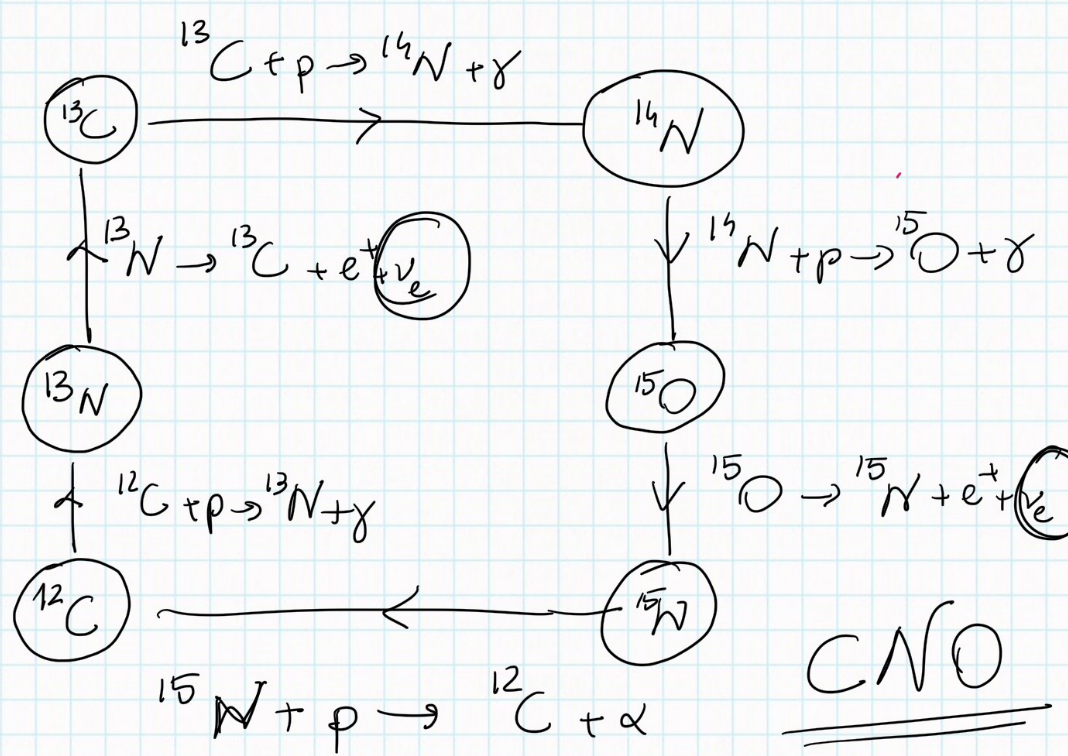 ¹³C + p → ¹⁴N + γ
¹³C
¹⁴N
¹³N → ¹³C + e⁺ + νₑ
¹⁴N + p → ¹⁵O + γ
¹³N
¹⁵O
¹²C + p → ¹³N + γ
¹⁵O → ¹⁵N + e⁺ + νₑ
¹²C
¹⁵N
¹⁵N + p → ¹²C + α
CNO